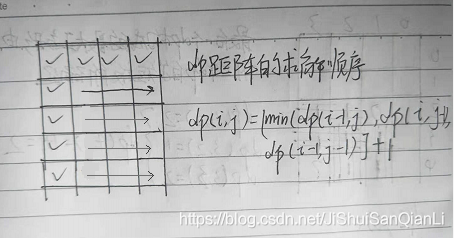 dp矩阵的求解顺序
dp(i,j)=[min(dp(i-1,j),dp(i,j-1),
dp(i-1,j-1)]+1
https://blog.csdn.net/JiShuiSanQianLi